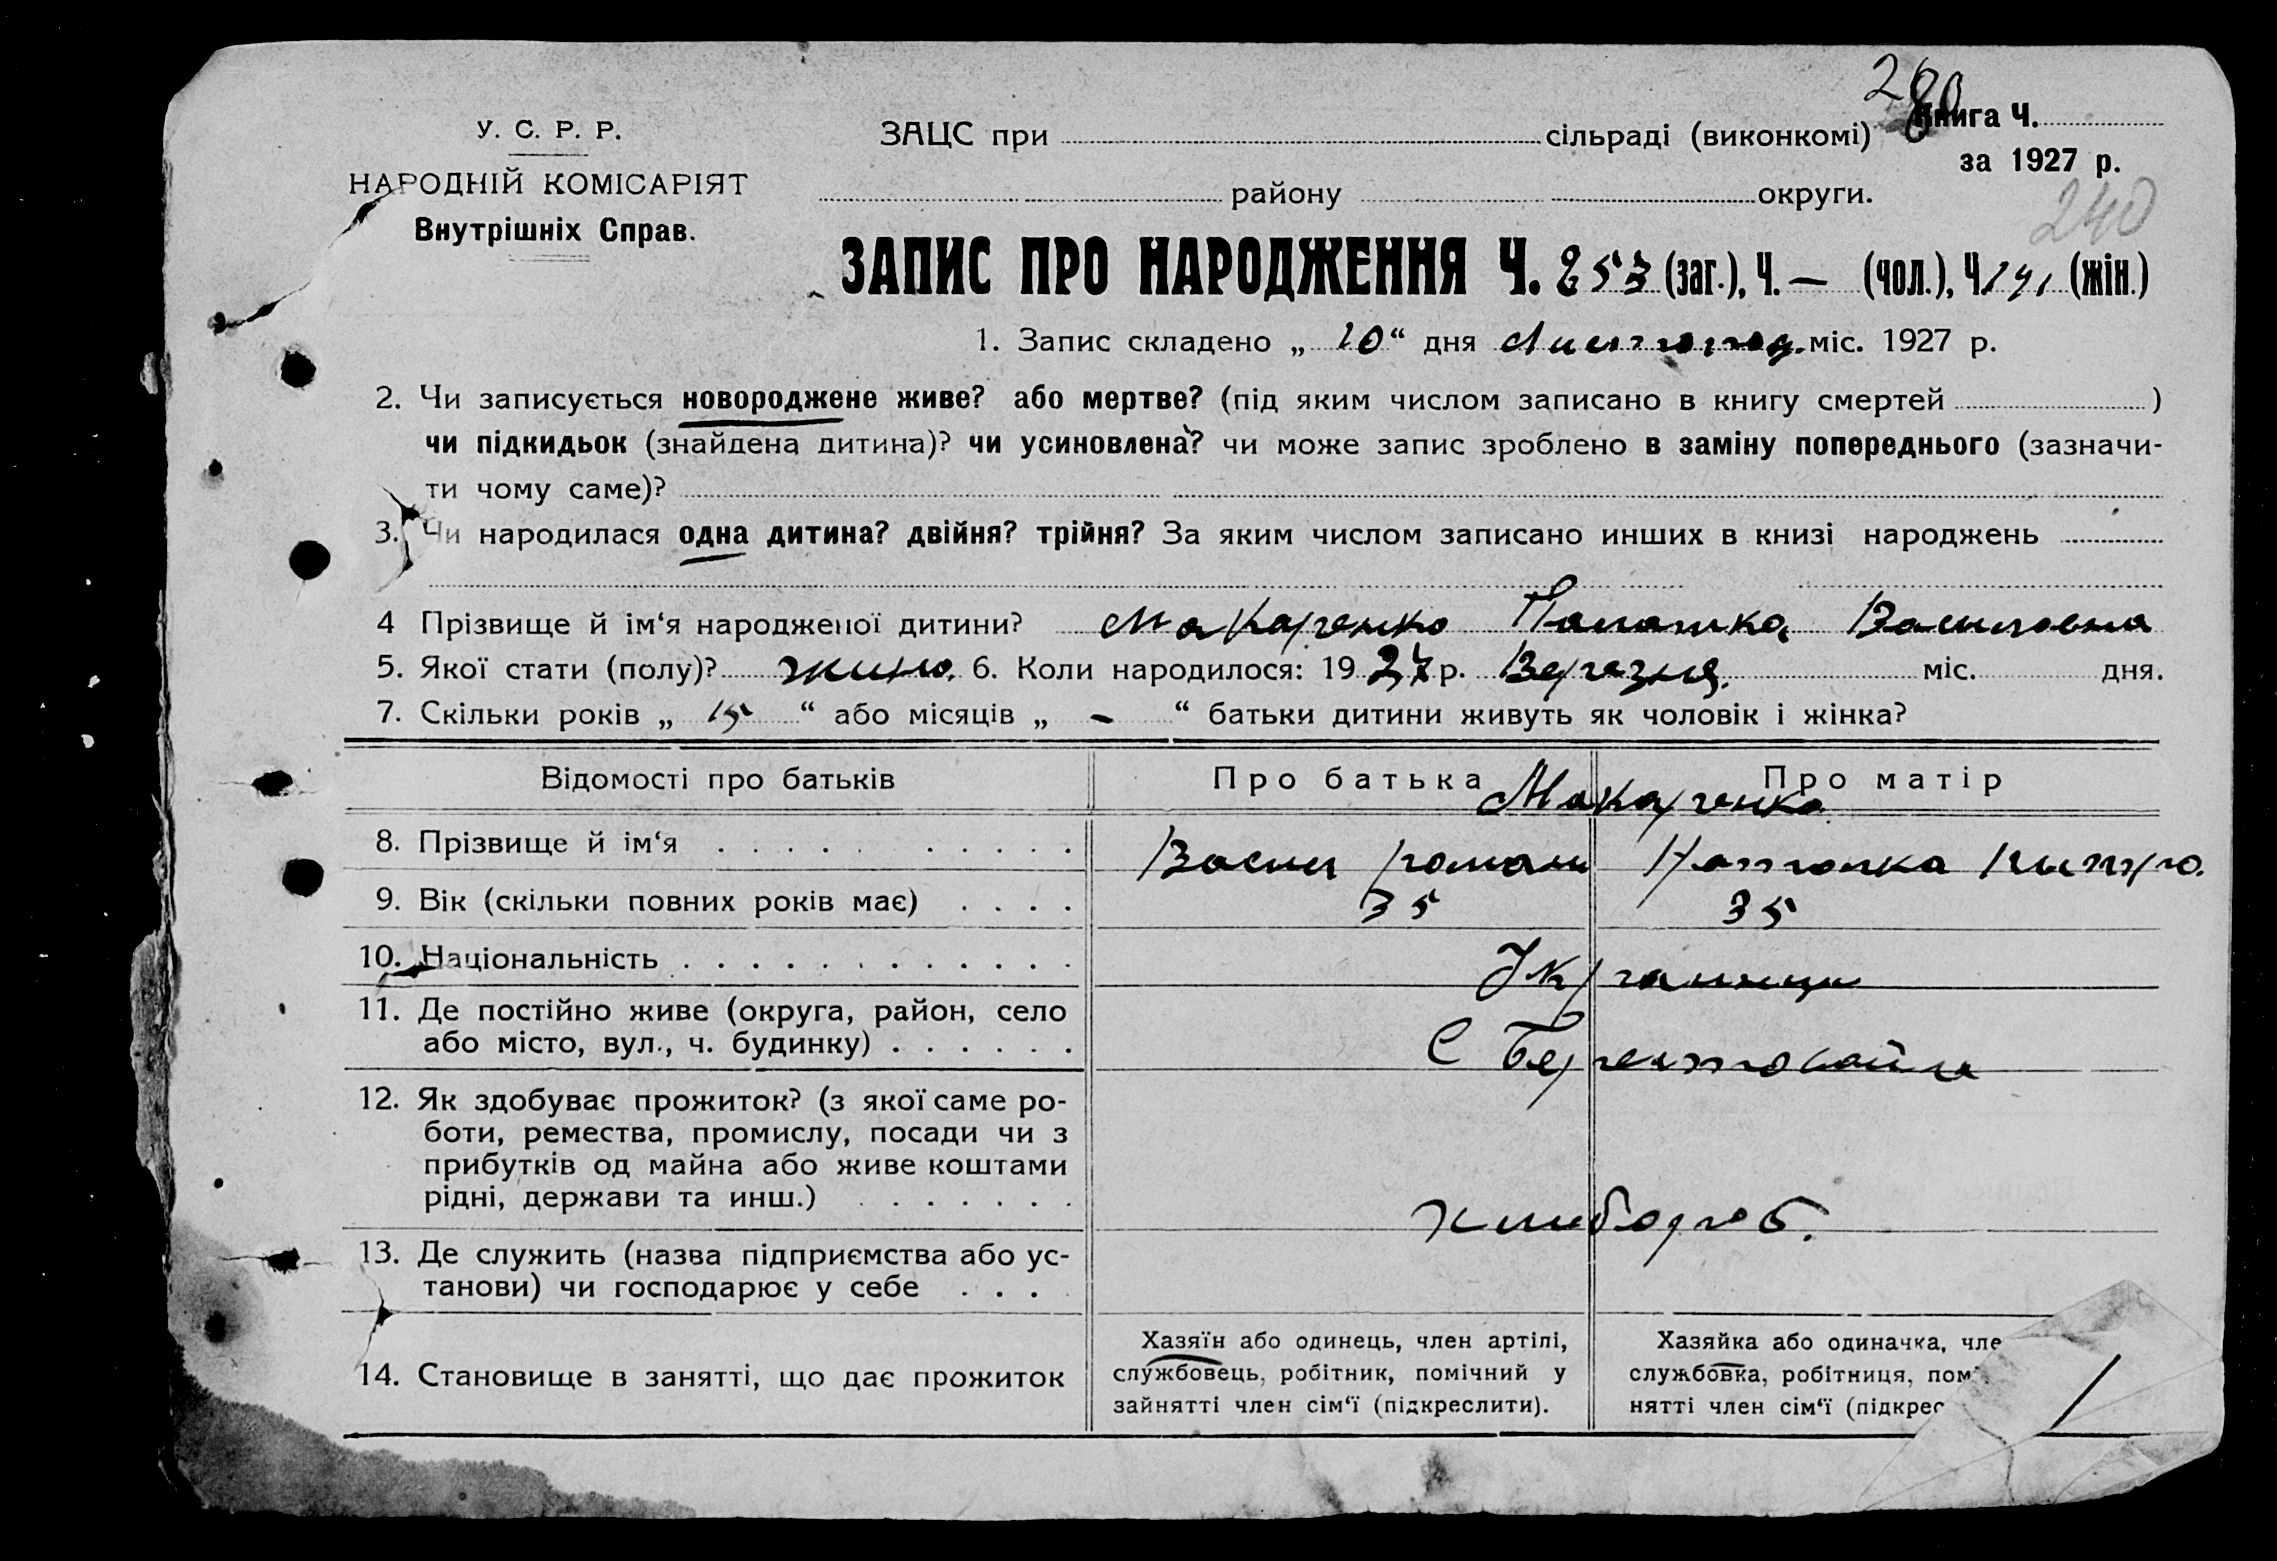 280
У. С. Р. Р.
НАРОДНІЙ КОМІСАРІЯТ
Внутрішніх Справ.
ЗАЦС при сільраді (виконкомі)
Книга Ч.
за 1927 р.
району округи.
240
ЗАПИС ПРО НАРОДЖЕННЯ Ч. 253 (заг.), Ч. — (чол.), Ч. 141 (жін.)
1. Запис складено „ 10 “ дня Листопад. міс. 1927 р.
2. Чи записується новороджене живе? або мертве? (під яким числом записано в книгу смертей )
чи підкидьок (знайдена дитина)? чи усиновлена? чи може запис зроблено в заміну попереднього (зазначи-
ти чому саме)?
3. Чи народилася одна дитина? двійня? трійня? За яким числом записано инших в книзі народжень
4 Прізвище й ім‘я народженої дитини? Макаренко Палашка Василовна
5. Якої стати (полу)? жино. 6. Коли народилося: 19 27 р. Березня. міс. дня.
7. Скільки років „ 15 “ або місяців „ - “ батьки дитини живуть як чоловік і жінка?
Відомості про батьків Про батька Про матір
Макаренко
8. Прізвище й ім‘я Васил Роман
9. Вік (скільки повних років має) 35 35
10. Національність Українци
11. Де постійно живе (округа, район, село
або місто, вул., ч. будинку) С
12. Як здобуває прожиток? (з якої саме ро-
боти, ремества, промислу, посади чи з
прибутків од майна або живе коштами
рідні, держави та инш.) хлибороб.
13. Де служить (назва підприємства або ус-
танови) чи господарює у себе
14. Становище в занятті, що дає прожиток
Хазяїн або одинець, член артілі,
службовець, робітник, помічний у
зайнятті член сім‘ї (підкреслити).
Хазяйка або одиначка, чле
службовка, робітниця, пом
нятті член сім‘ї (підкрес